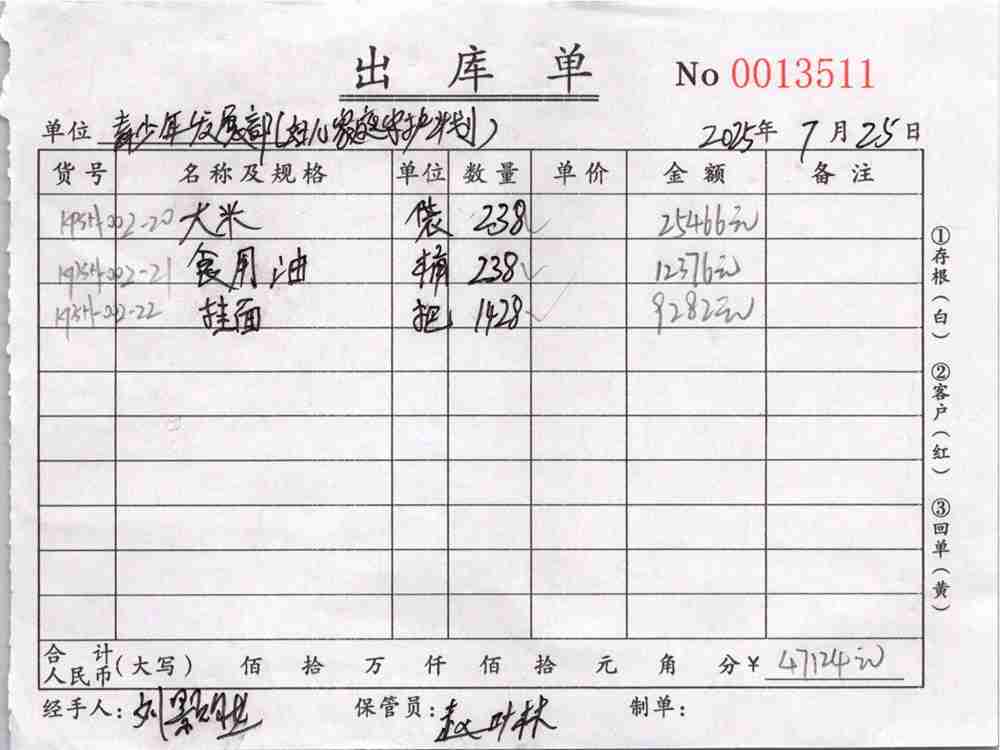 出库单 No 0013511
单位 青少年发展部(妇儿家庭守护计划) 2025年 7月25日
货号 名称及规格 单位 数量 单价 金额 备注
002-20 大米 袋 238 25466元
002-21 食用油 桶 238 12376元
002-22 挂面 把 1428 9282元
合计人民币(大写) 佰 拾 万 仟 佰 拾 元 角 分¥ 47124元
经手人: 刘 保管员: 赵叶林 制单:
①存根(白) ②客户(红) ③回单(黄)